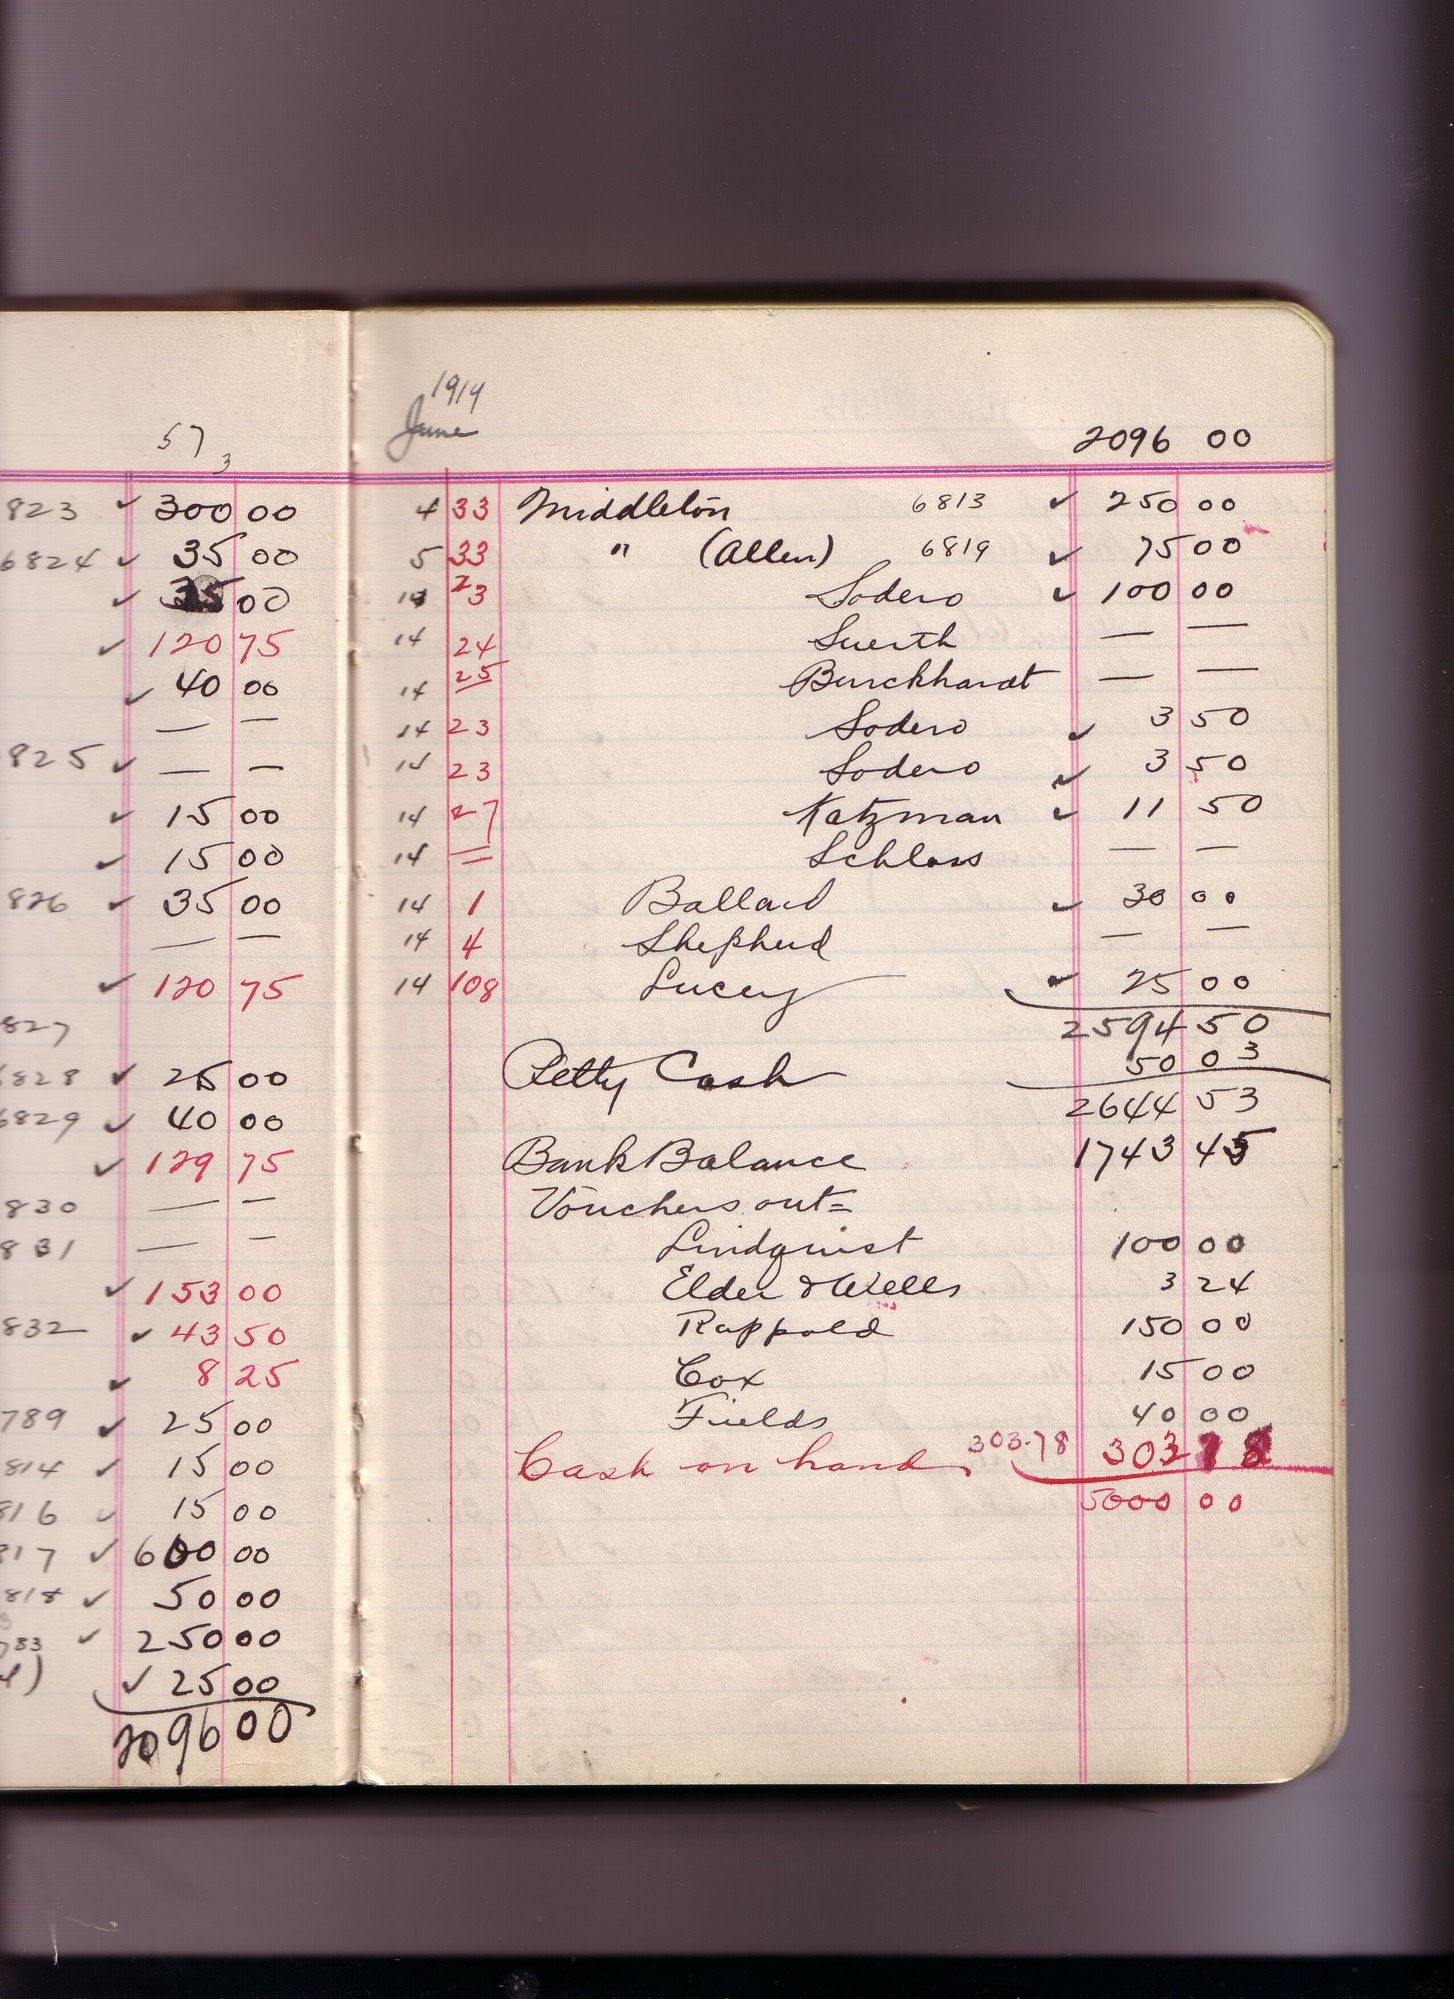 57 3
823 ✓ 300 00
6824 ✓ 35 00
✓ 35 00
✓ 120 75
✓ 40 00
— —
825 ✓ — —
✓ 15 00
✓ 15 00
826 ✓ 35 00
— —
✓ 120 75
827
6828 ✓ 25 00
6829 ✓ 40 00
✓ 129 75
830 — —
831 — —
✓ 153 00
832 ✓ 43 50
✓ 8 25
789 ✓ 25 00
814 ✓ 15 00
816 ✓ 15 00
817 ✓ 600 00
818 ✓ 50 00
783 ✓ 250 00
✓ 25 00
2096 00
1914
June 2096 00
4 33 Middleton 6813 ✓ 250 00
5 33 " (Allen) 6819 ✓ 75 00
14 23 Sodero ✓ 100 00
14 24 Suerth — —
14 25 Burckhardt — —
14 23 Sodero ✓ 3 50
14 23 Sodero ✓ 3 50
14 27 Katzman ✓ 11 50
14 = Schloss — —
14 1 Ballard ✓ 30 00
14 4 Shepherd — —
14 108 Lucey ✓ 25 00
2594 50
Petty Cash 50 03
2644 53
Bank Balance 1743 45
Vouchers out=
Lindquist 100 00
Elder & Wells 3 24
Rappold 150 00
Cox 15 00
Fields 40 00
Cash on hand 303.78 303 78
5000 00